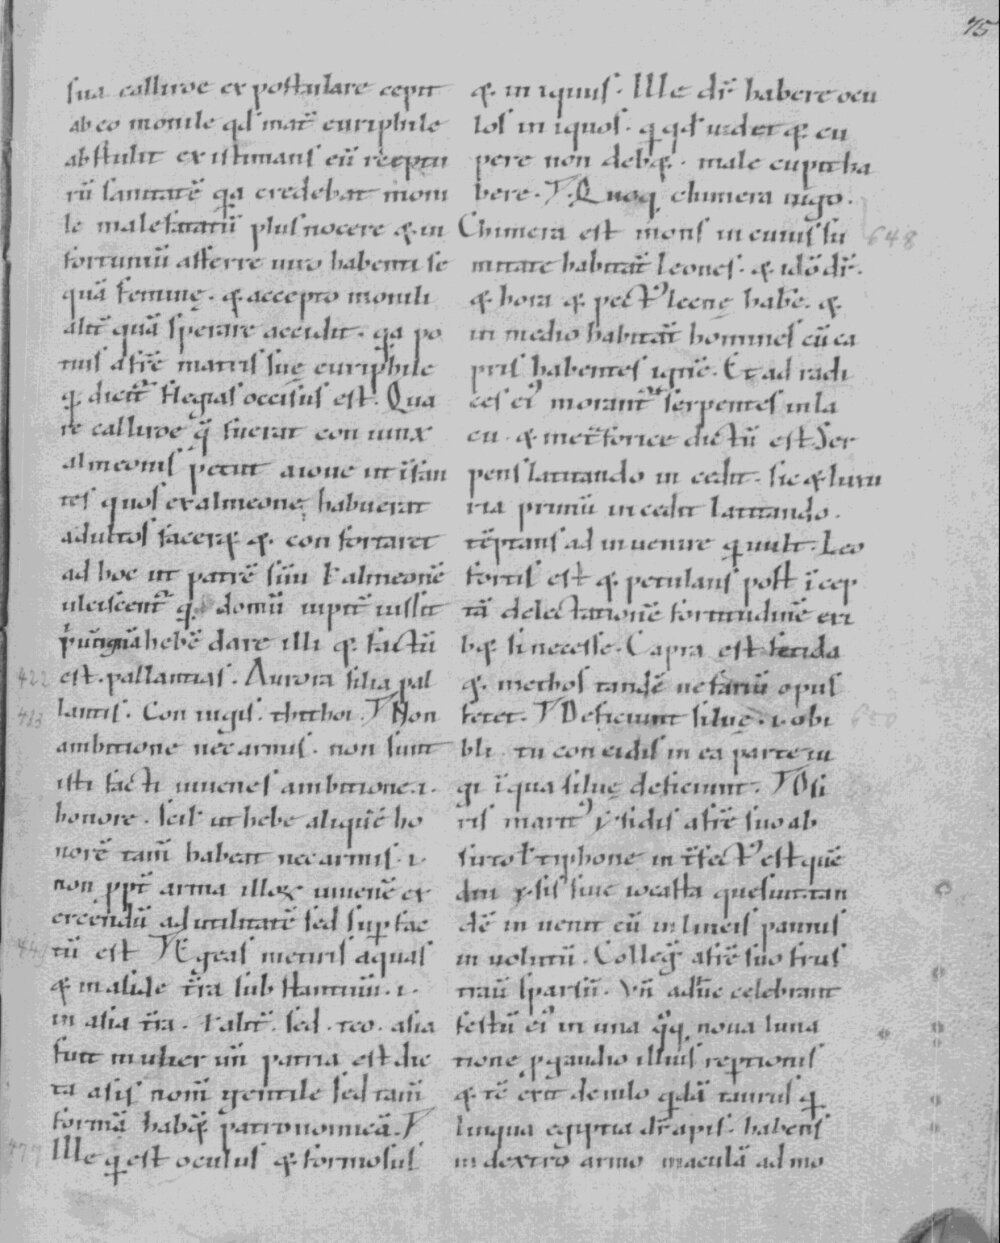 75
sua calliroe expostulare cepit
ab eo monile qd' mat̄ euriphile
abstulit existimans eū receptu
rū sanitatē qa credebat moni
le male fatatū plus nocere & in
fortuniū afferre uiro habenti se
quā feminę. & accepto monili
alit̄ quā sperare accidit. qa po
tius a fr̄e matris suę euriphile
q̄ dicit̄ flegias occisus est. Qua
re calliroe q̄ fuerat coniunx
almeonis petiit a ioue ut īfan
tes quos ex almeone habuerat
adultos facer& &. confortaret
ad hoc ut patrē suū ł almeonē
ulciscent̄ domū iupit̄ iussit
hebē dare illi & factū
est. pallantias. Aurora filia pal
lantis. Coniugis. thitboi. Non
ambitione nec armis. non sunt
isti facti iuuenes ambitione .i.
honore. scil' ut hebe aliquē ho
norē tam̄ habeat nec armis .i.
non ppt̄ arma illos iuuenē ex
ercendū ad utilitatē sed sup fac
tū est Egeas metiris aquas
& in aside t̄ra substantiuū .i.
in asia t̄ra. ł alit̄. sed. teo. asia
fuit mulier un̄ patria est dic
ta asis nom̄ gentile sed tam̄
formā hab& patronomicā.
Ille q̄ est oculus & formosus
&. in iquus. Ille dr̄ habere ocu
los in iquos. q qd' uidet & cu
pere non deb&. male cupit ha
bere. Quoq chimera iugo.
Chimera est mons in cuius su
mitate habitat̄ leones. & idō dr̄.
& hora & pect' leenę habē. &
in medio habitat̄ homines cū ca
pris habentes ignē. Et ad radi
ces ei' morant̄ serpentes in la
cu. & meretorice dictū est Ser
pens latitando incedit. sic & luxu
ria primū incedit latitando.
tēptans ad inuenire q uult. Leo
fortis est & petulans post īcep
tā delectationē fortitudinē exi
b& si necesse. Capra est fetida
&. methos tandē nefariū opus
fetet. Deficiunt siluę .i. obi
bli. tu concidis in ea parte iu
gi īqua siluę deficiunt. Osi
ris marit' ysidis a fr̄e suo ab
sirto ł tiphone in t̄fect' est quē
diu ysis siue iocasta quesiuit. tan
dē in uenit eū in lineis pannis
inuolutū. Colleḡ a fr̄e suo frus
trati sparsū. Vn̄ adhuc celebrant
festū ei' in una q̄q noua luna
tione p gaudio illius reptionis
& tē exit de nilo qdā taurus q
lingua egiptia dr̄ apis. habens
in dextro armo maculā ad mo
422
413
441
477
648
650